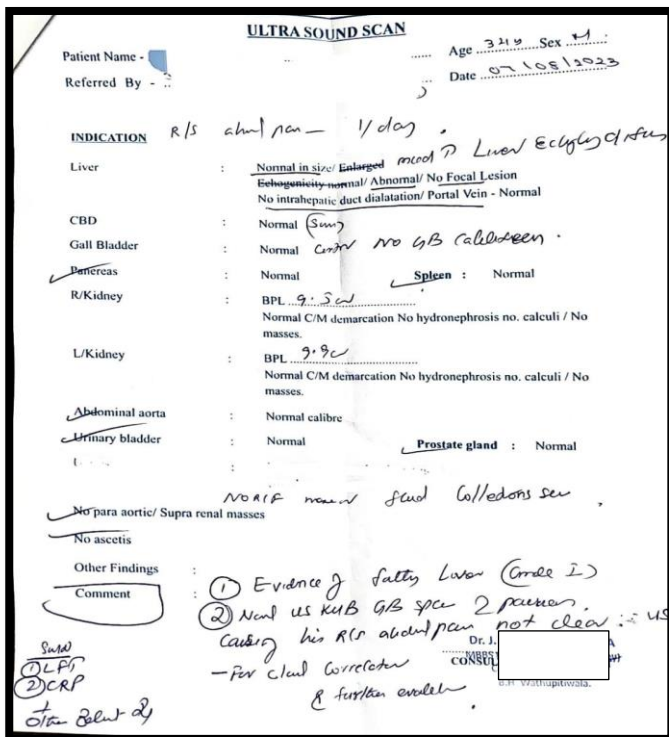 ULTRA SOUND SCAN
Patient Name -
Age 32y Sex M
Referred By -
Date 07/08/2023
INDICATION R/S 1/day.
Liver : Normal in size/ Enlarged Liver
Echogenicity normal/ Abnormal/ No Focal Lesion
No intrahepatic duct dialatation/ Portal Vein - Normal
CBD : Normal
Gall Bladder : Normal NO GB
Panereas : Normal Spleen : Normal
R/Kidney : BPL 9.5cm
Normal C/M demarcation No hydronephrosis no. calculi / No
masses.
L/Kidney : BPL 9.9cm
Normal C/M demarcation No hydronephrosis no. calculi / No
masses.
Abdominal aorta : Normal calibre
Urinary bladder : Normal Prostate gland : Normal
NO RIF fluid collections
No para aortic/ Supra renal masses
No ascetis
Other Findings :
Comment : ① Evidence of fatty Liver (Grade I)
② US KUB GB 2 pancreas.
his R/S not clear US
Dr. J.
MBBS
CONSUL
- For correlation
B.H. Wathupitiwala.
①LFT
②CRP
+